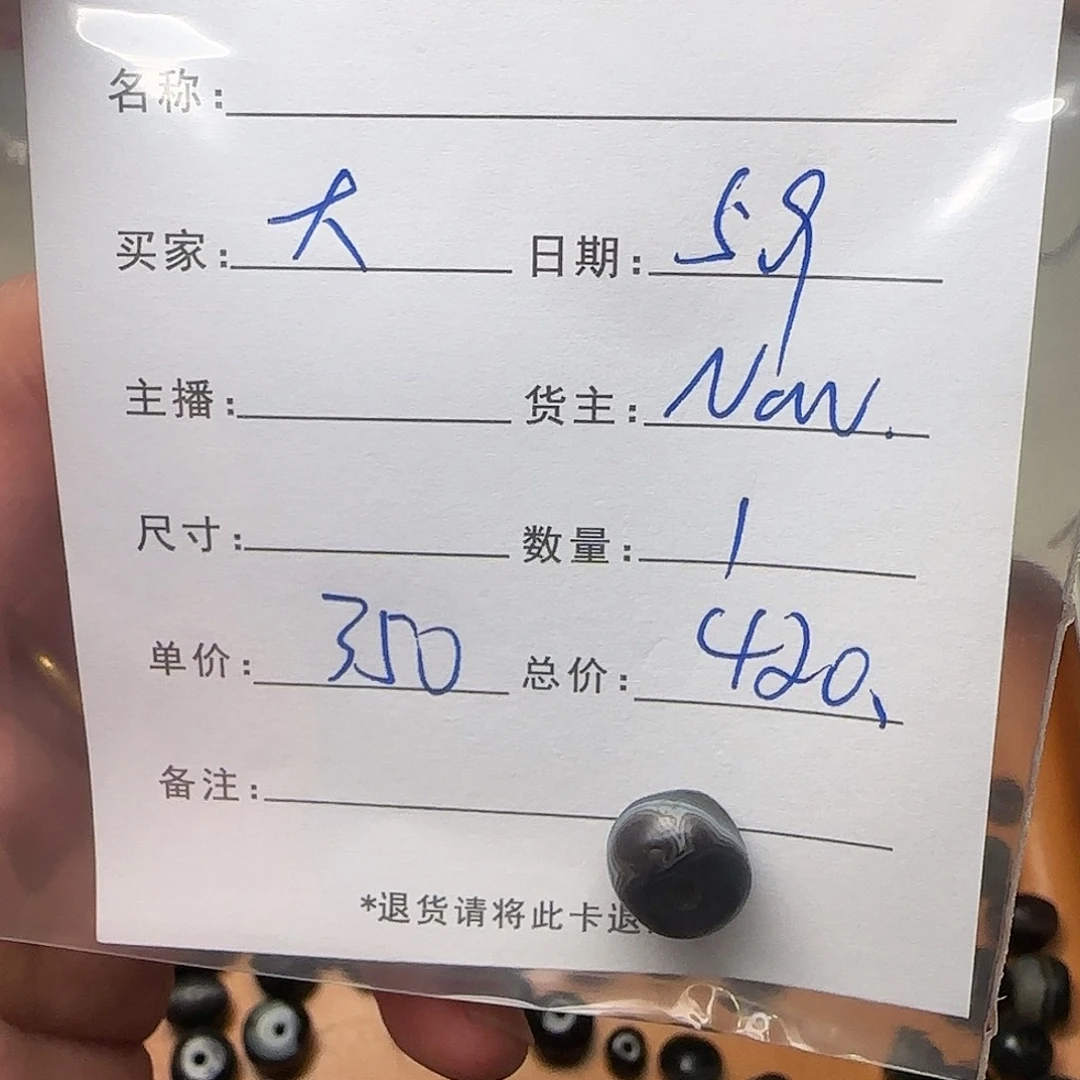 名称:
买家: 大 日期: 5.9
主播: 货主: Nan.
尺寸: 数量: 1
单价: 350 总价: 420、
备注:
*退货请将此卡退